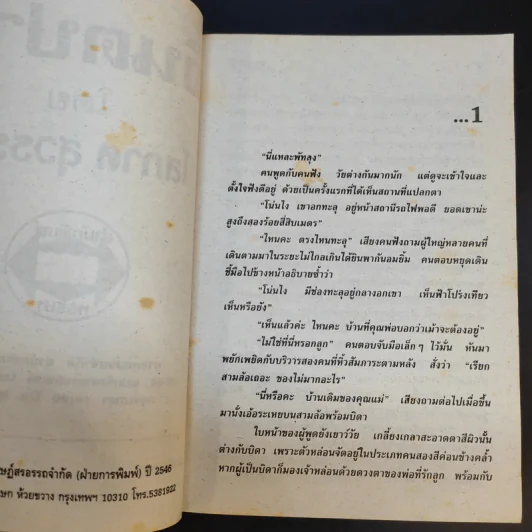 โดย
โสภาค สุวรรณ
...1
“นี่แหละพัทลุง”
คนพูดกับคนฟัง วัยต่างกันมากนัก แต่ดูจะเข้าใจและ
ตั้งใจฟังดีอยู่ ด้วยเป็นครั้งแรกที่ได้เห็นสถานที่แปลกตา
“โน่นไง เขาอกทะลุ อยู่หน้าสถานีรถไฟพอดี ยอดเขาน่ะ
สูงถึงสองร้อยสี่สิบเมตร”
“ไหนคะ ตรงไหนทะลุ” เสียงคนฟังถามผู้ใหญ่หลายคนที่
เดินตามมาในระยะไม่ไกลเกินได้ยินพากันอมยิ้ม คนตอบหยุดเดิน
ชี้มือไปข้างหน้าอธิบายซ้ำว่า
“โน่นไง มีช่องทะลุอยู่กลางอกเขา เห็นฟ้าโปร่งเทียว
เห็นหรือยัง”
“เห็นแล้วค่ะ ไหนคะ บ้านที่คุณพ่อบอกว่าเม้าจะต้องอยู่”
“ไม่ใช่ที่นี่หรอกลูก” คนตอบจับมือเล็ก ๆ ไว้มั่น หันมา
พยักเพยิดกับบริวารสองคนที่หิ้วสัมภาระตามหลัง สั่งว่า “เรียก
สามล้อเถอะ ของไม่มากอะไร”
“นี่หรือคะ บ้านเดิมของคุณแม่” เสียงถามต่อไปเมื่อขึ้น
มานั่งเอ้อระเหยบนสามล้อพร้อมบิดา
ใบหน้าของผู้พูดยังเยาว์วัย เกลี้ยงเกลาสะอาดตาสีผิวนั้น
ต่างกับบิดา เพราะตัวหล่อนจัดอยู่ในประเภทคนสองสีค่อนข้างคล้ำ
หากผู้เป็นบิดาก็มองเจ้าหล่อนด้วยดวงตาของพ่อที่รักลูก พร้อมกับ
สรอรรถจำกัด (ฝ่ายการพิมพ์) ปี 2546
ห้วยขวาง กรุงเทพฯ 10310 โทร.5381922